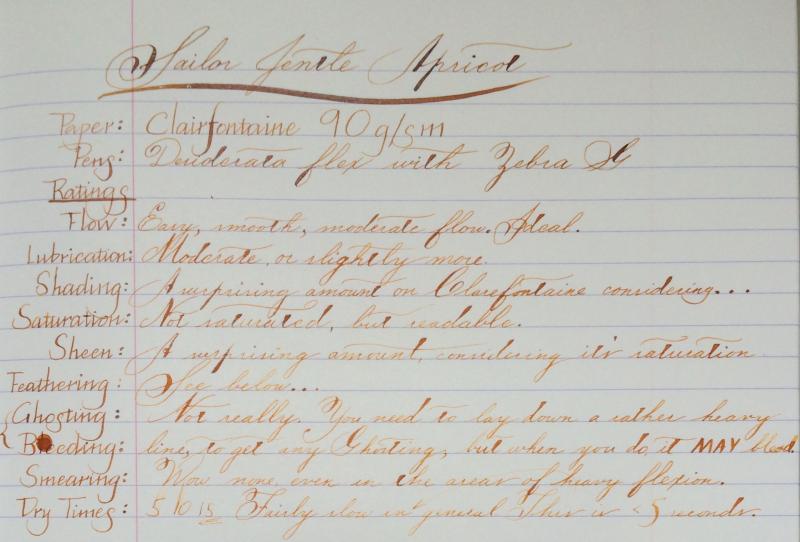 Sailor Jentle Apricot
Paper: Clairfontaine 90g/sm
Pens: Desiderata flex with Zebra G
Ratings
Flow: Easy, smooth, moderate flow. Ideal.
Lubrication: Moderate, or slightly more.
Shading: A surprising amount on Clarefontaine considering...
Saturation: Not saturated, but readable.
Sheen: A surprising amount, considering it's saturation
Feathering: See below...
Ghosting: Not really. You need to lay down a rather heavy
Bleeding: line, to get any Ghosting, but when you do, it MAY bleed.
Smearing: Wow none even in the areas of heavy flexion.
Dry Times: 5 10 15 Fairly slow in general This is <5 seconds.